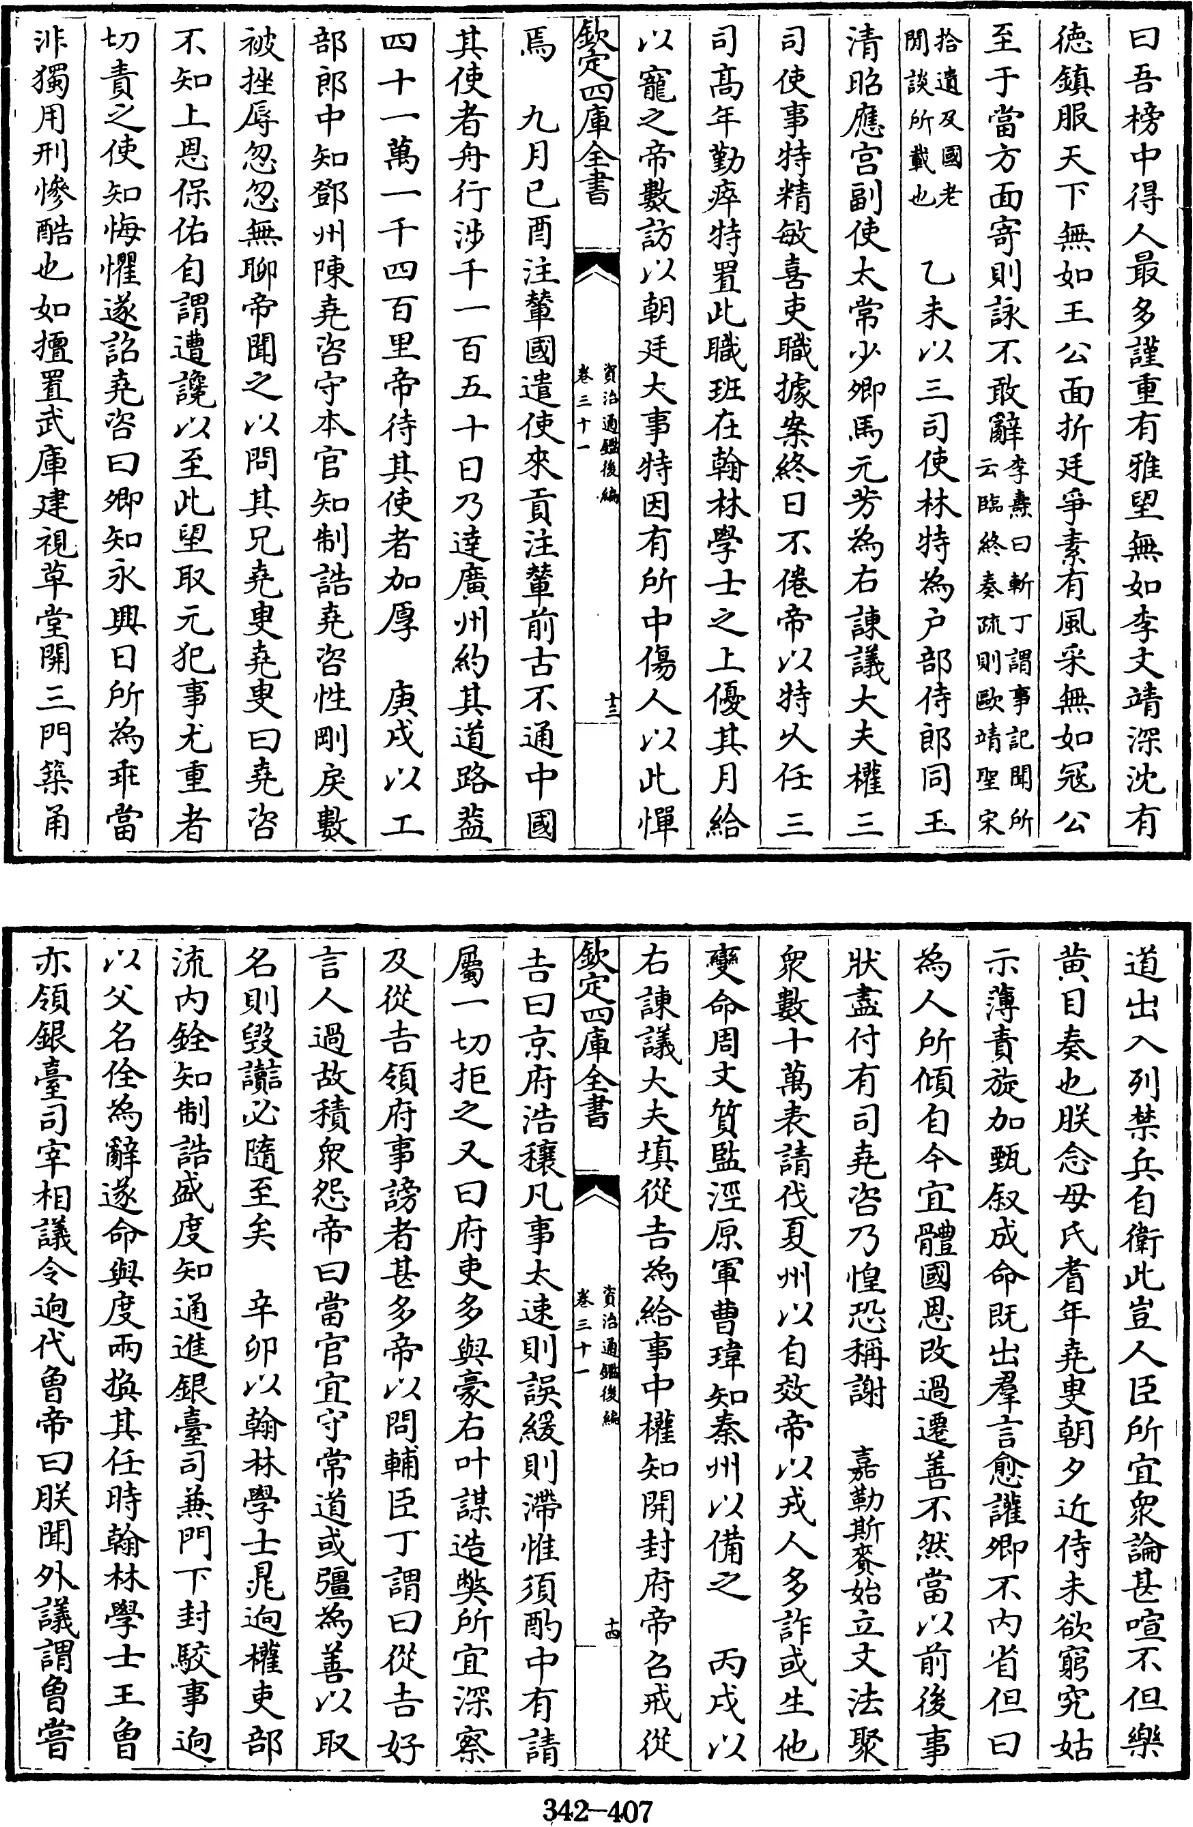 曰吾榜中得人最多謹重有雅望無如李文靖深沈有
徳鎮服天下無如王公面折廷爭素有風采無如冦公
至于當方面寄則詠不敢辭李燾曰斬丁謂事記聞所云臨終奏疏則歐靖聖宋
拾遺及國老閒談所載也　乙未以三司使林特為户部侍郎同玉
清昭應宫副使太常少卿馬元芳為右諫議大夫權三
司使事特精敏喜吏職據案終日不倦帝以特乆任三
司髙年勤瘁特置此職班在翰林學士之上優其月給
以寵之帝數訪以朝廷大事特因有所中傷人以此憚
欽定四庫全書　資治通鑑後編　卷三十一　十三
焉　九月已酉注輦國遣使來貢注輦前古不通中國
其使者舟行涉千一百五十日乃達廣州約其道路葢
四十一萬一千四百里帝待其使者加厚　庚戌以工
部郎中知鄧州陳堯咨守本官知制誥堯咨性剛戾數
被挫辱忽忽無聊帝聞之以問其兄堯叟堯叟曰堯咨
不知上恩保佑自謂遭讒以至此望取元犯事尤重者
切責之使知悔懼遂詔堯咨曰卿知永興日所為乖當
非獨用刑慘酷也如擅置武庫建視草堂開三門築甬
道出入列禁兵自衛此豈人臣所宜衆論甚喧不但樂
黄目奏也朕念母氏耆年堯叟朝夕近侍未欲窮究姑
示薄責旋加甄叙成命既出羣言愈讙卿不内省但曰
為人所傾自今宜體國恩改過遷善不然當以前後事
狀盡付有司堯咨乃惶恐稱謝　嘉勒斯賚始立文法聚
衆數十萬表請伐夏州以自效帝以戎人多詐或生他
變命周文質監涇原軍曹瑋知秦州以備之　丙戌以
右諫議大夫填從吉為給事中權知開封府帝召戒從
欽定四庫全書　資治通鑑後編　卷三十一　十四
吉曰京府浩穰凡事太速則誤緩則滯惟須酌中有請
屬一切拒之又曰府吏多與豪右叶謀造弊所宜深察
及從吉領府事謗者甚多帝以問輔臣丁謂曰從吉好
言人過故積衆怨帝曰當官宜守常道或彊為善以取
名則毀讟必隨至矣　辛卯以翰林學士晁迥權吏部
流内銓知制誥盛度知通進銀臺司兼門下封駮事迥
以父名佺為辭遂命與度兩換其任時翰林學士王曾
亦領銀臺司宰相議令迥代曾帝曰朕聞外議謂曾嘗
342-407